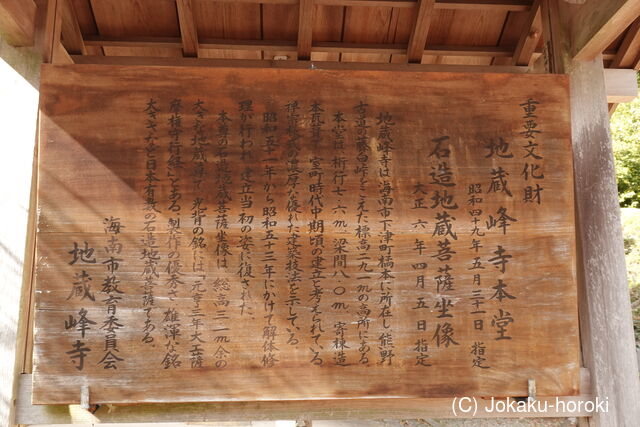 重要文化財
地蔵峰寺本堂
昭和四十九年五月二十一日 指定
石造地蔵菩薩坐像
大正 六 年 四 月 五 日 指定
地蔵峰寺は海南市下津町橘本に所在し熊野
古道の藤白峠をこえた標高二九一mの高所にある。
本堂は、桁行七・六m、梁間八・〇m、寄棟造
本瓦葺で室町時代中期頃の建立と考えられている。
禅宗様式の濃厚な優れた建築技法を示している。
昭和五十一年から昭和五十三年にかけて解体修
理が行われ、建立当初の姿に復された。
本尊の石造地蔵菩薩坐像は、総高三・一m余の
大きな地蔵尊で、光背の銘には「元亨三年大菩薩
摩指守行経」とある。製作の優秀さ、雄渾な銘
大きさなど日本有数の石造地蔵菩薩である。
海南市教育委員会
地蔵峰寺
(C) Jokaku-horoki